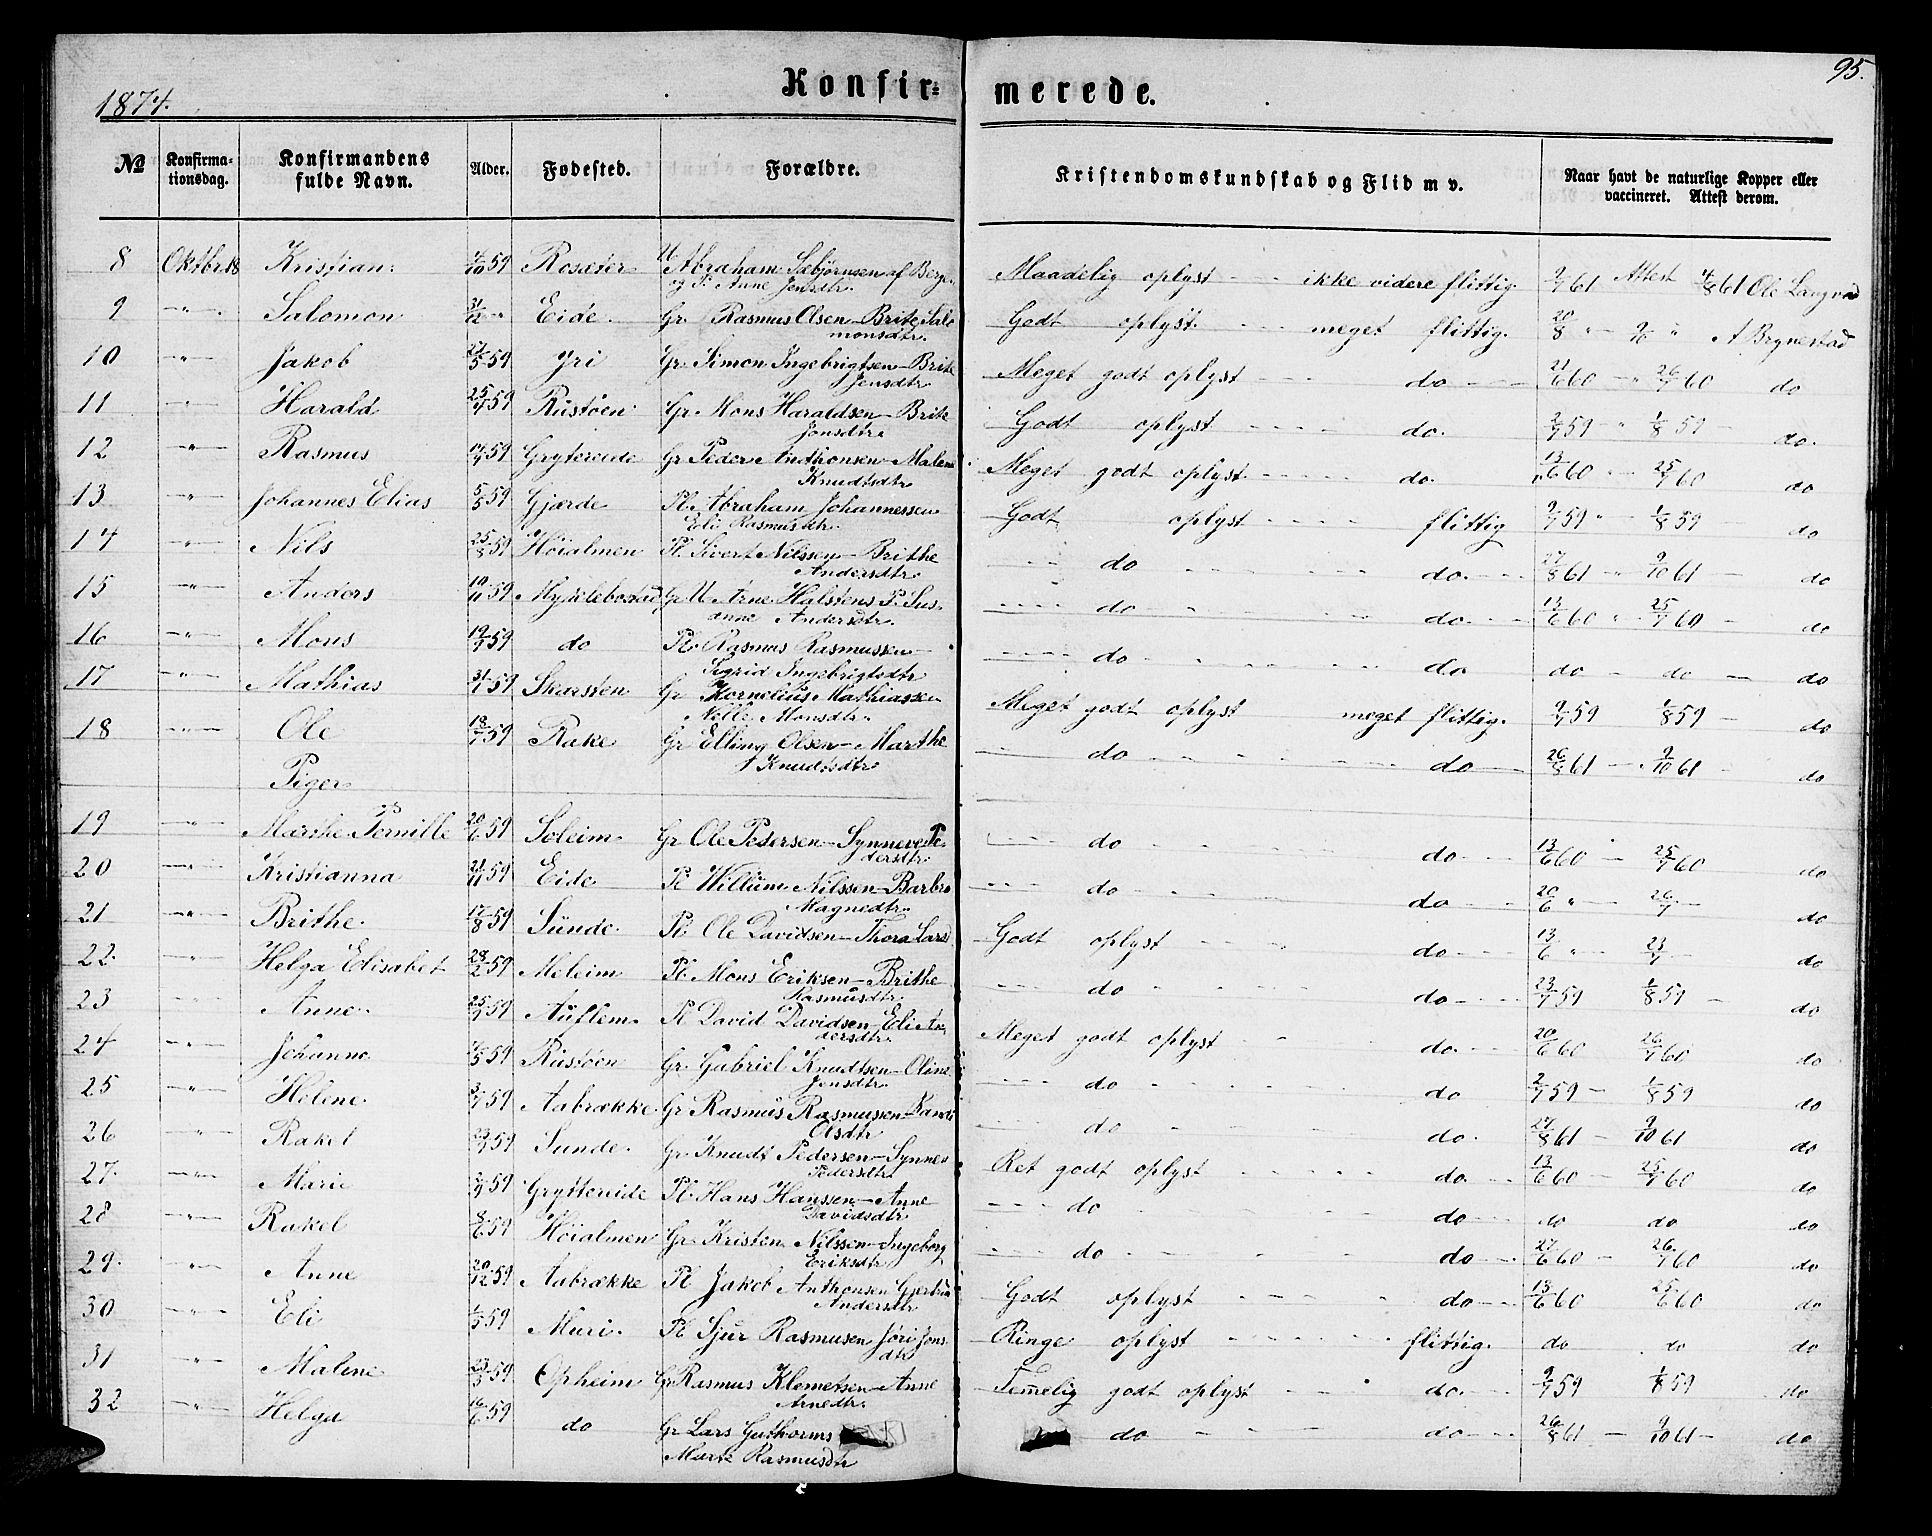 1874. Konfir= merede. 95.
№ Konfirma- tionsdag. Konfirmandens fulde Navn. Alder. Fødested. Forældre. Kristendomskundskab og Flid m v. Naar havt de naturlige Kopper eller vaccineret. Attest derom.
8 Oktbr. 18 Kristian 59 Rosæter U Abraham Sæbjörnsen af Bergen Maadelig oplyst - - ikke videre flittig. 9/7 61 Attest 4/8 61 Ole Langvad
og P. Anne Jensdtr.
9 - " - Salomon 31/12 " Eide. Gr. Rasmus Olsen - Brite Salo Godt oplyst. - - - meget flittig. 20/8 " A Brynestad
monsdtr.
10 - " - Jakob 27/5 59 Yri Gr. Simon Ingebrigtsen - Brite Meget godt oplyst - - - do 21/6 60 - " 26/7 60 do
Jensdtr
11 - " - Harald 59 Rustøen Gr. Mons Haraldsen - Brite Godt oplyst - - - - do. 59 - " 1/8 59 - do.
Jonsdtr
12 - " - Rasmus 59 Grytereide Gr Peder Andthonsen - Malene Meget godt oplyst - - - - do. 13/6 60 " - 25/7 60 do
Knudtsdtr
13 - " - Johannes Elias 5/5 59 Gjærde Pl. Abraham Johannessen Godt oplyst - - - - flittig 9/7 59 " - 1/8 59 - do
Eli Rasmusdtr.
14 - " - Nils 25/8 59 Höialmen Pl. Sivert Nilssen - Brithe - - - do do. - - 27/8 61 - " 9/10 61 - do
Andersdtr
15 - " - Anders 59 Myklebostad Gr U. Arne Halstens P. Sus- - - - do - - - do. - - 13/6 60 " - 25/7 60 - do
anne Andersdtr.
16 - " - Mons 59 do Pl. Rasmus Rasmussen - - - - do - - - do do - do - do
Sigrid Ingebrigtsdtr
17 - " - Mathias 59 Skarsten Gr Kornelius Mathiassen Meget godt oplyst meget flittig. 9/7 59 1/8 59 - do
Nille Monsdtr.
18 - " - Ole 18/7 59 Rake Gr Elling Olsen - Marthe - do - - - do 26/8 61 - 9/10 61 - do
Knudtsdtr.
Piger
19 - " - Marthe Pernille 20/6 59 Soleim Gr Ole Pedersen - Synneve Pe- - - - do - do - - 13/6 60 " - 25/7 60 do
dersdtr.
20 - " - Kristianna 21/11 59 Eide Pl Willum Nilssen - Barbro - - - do - - do - - 20/6 " - 26/7 - do
Magnedtr.
21 - " - Brithe. 17/8 59 Sünde. Pl. Ole Davidsen - Thora Larsd Godt oplyst - - do - - 13/6 " - 23/7 - do
22. - " - Helga Elisabet 28/2 59 Meleim Pl. Mons Eriksen - Brithe - - - do - - do - - 23/7 59 1/8 59 - do
Rasmusdtr.
23 - " - Anne. 59 Auflem. Pl David Davidsen - Eli An- Meget godt oplyst - - do. - - 20/6 60 26/7 60 do
dersdtr.
24 - " - Johanne 59 Rüstöen Gr. Gabriel Knudtsen - Oline - - - do - - - do 59 - 1/8 59 do
Jensdtr.
25 - " - Helene. 59 Aabrække. Gr Rasmus Rasmussen - Rand - - - do - - do. 27/8 61 - 9/10 61 do
Olsdtr
26 - " - Rakel 59 Sunde. Gr. Knudt Pedersen - Synnev Ret godt oplyst - - - - do. - 13/6 60 - 25/7 60 do
Pedersdtr.
27. - " - Marie 59 Gryttereide Pl. Hans Hanssen - Anne - - - do - - do - - do do do
Davidsdtr
28 - " - Rakel 8/6 59 Höialmen Gr. Kristen Nilssen - Ingeborg - - - do - - - do - - 27/6 60 - 26/7 60 do
Eriksdtr
29. - " - Anne 20/12 59 Aabrække Pl. Jakob Anthonsen Gjertrü Godt oplyst - - - do - - 13/6 60 25/6 60 do
Andersdtr
30 - " - Eli 59 Muri. Pl Sjur Rasmusen Jöri Jons- Ringe oplyst - - - - flittig. do do do
dtr
31 - " - Malene 59 Opheim Gr Rasmus Klemetsen - Anne Temelig godt oplyst - - do. - - 9/7 59 1/8 59 do
Arnedtr.
32 - " - Helga 16/6 59 do Gr Lars Guthorms do - - - do - - 26/8 61 - 9/10 61 - do
Marte Rasmusdtr